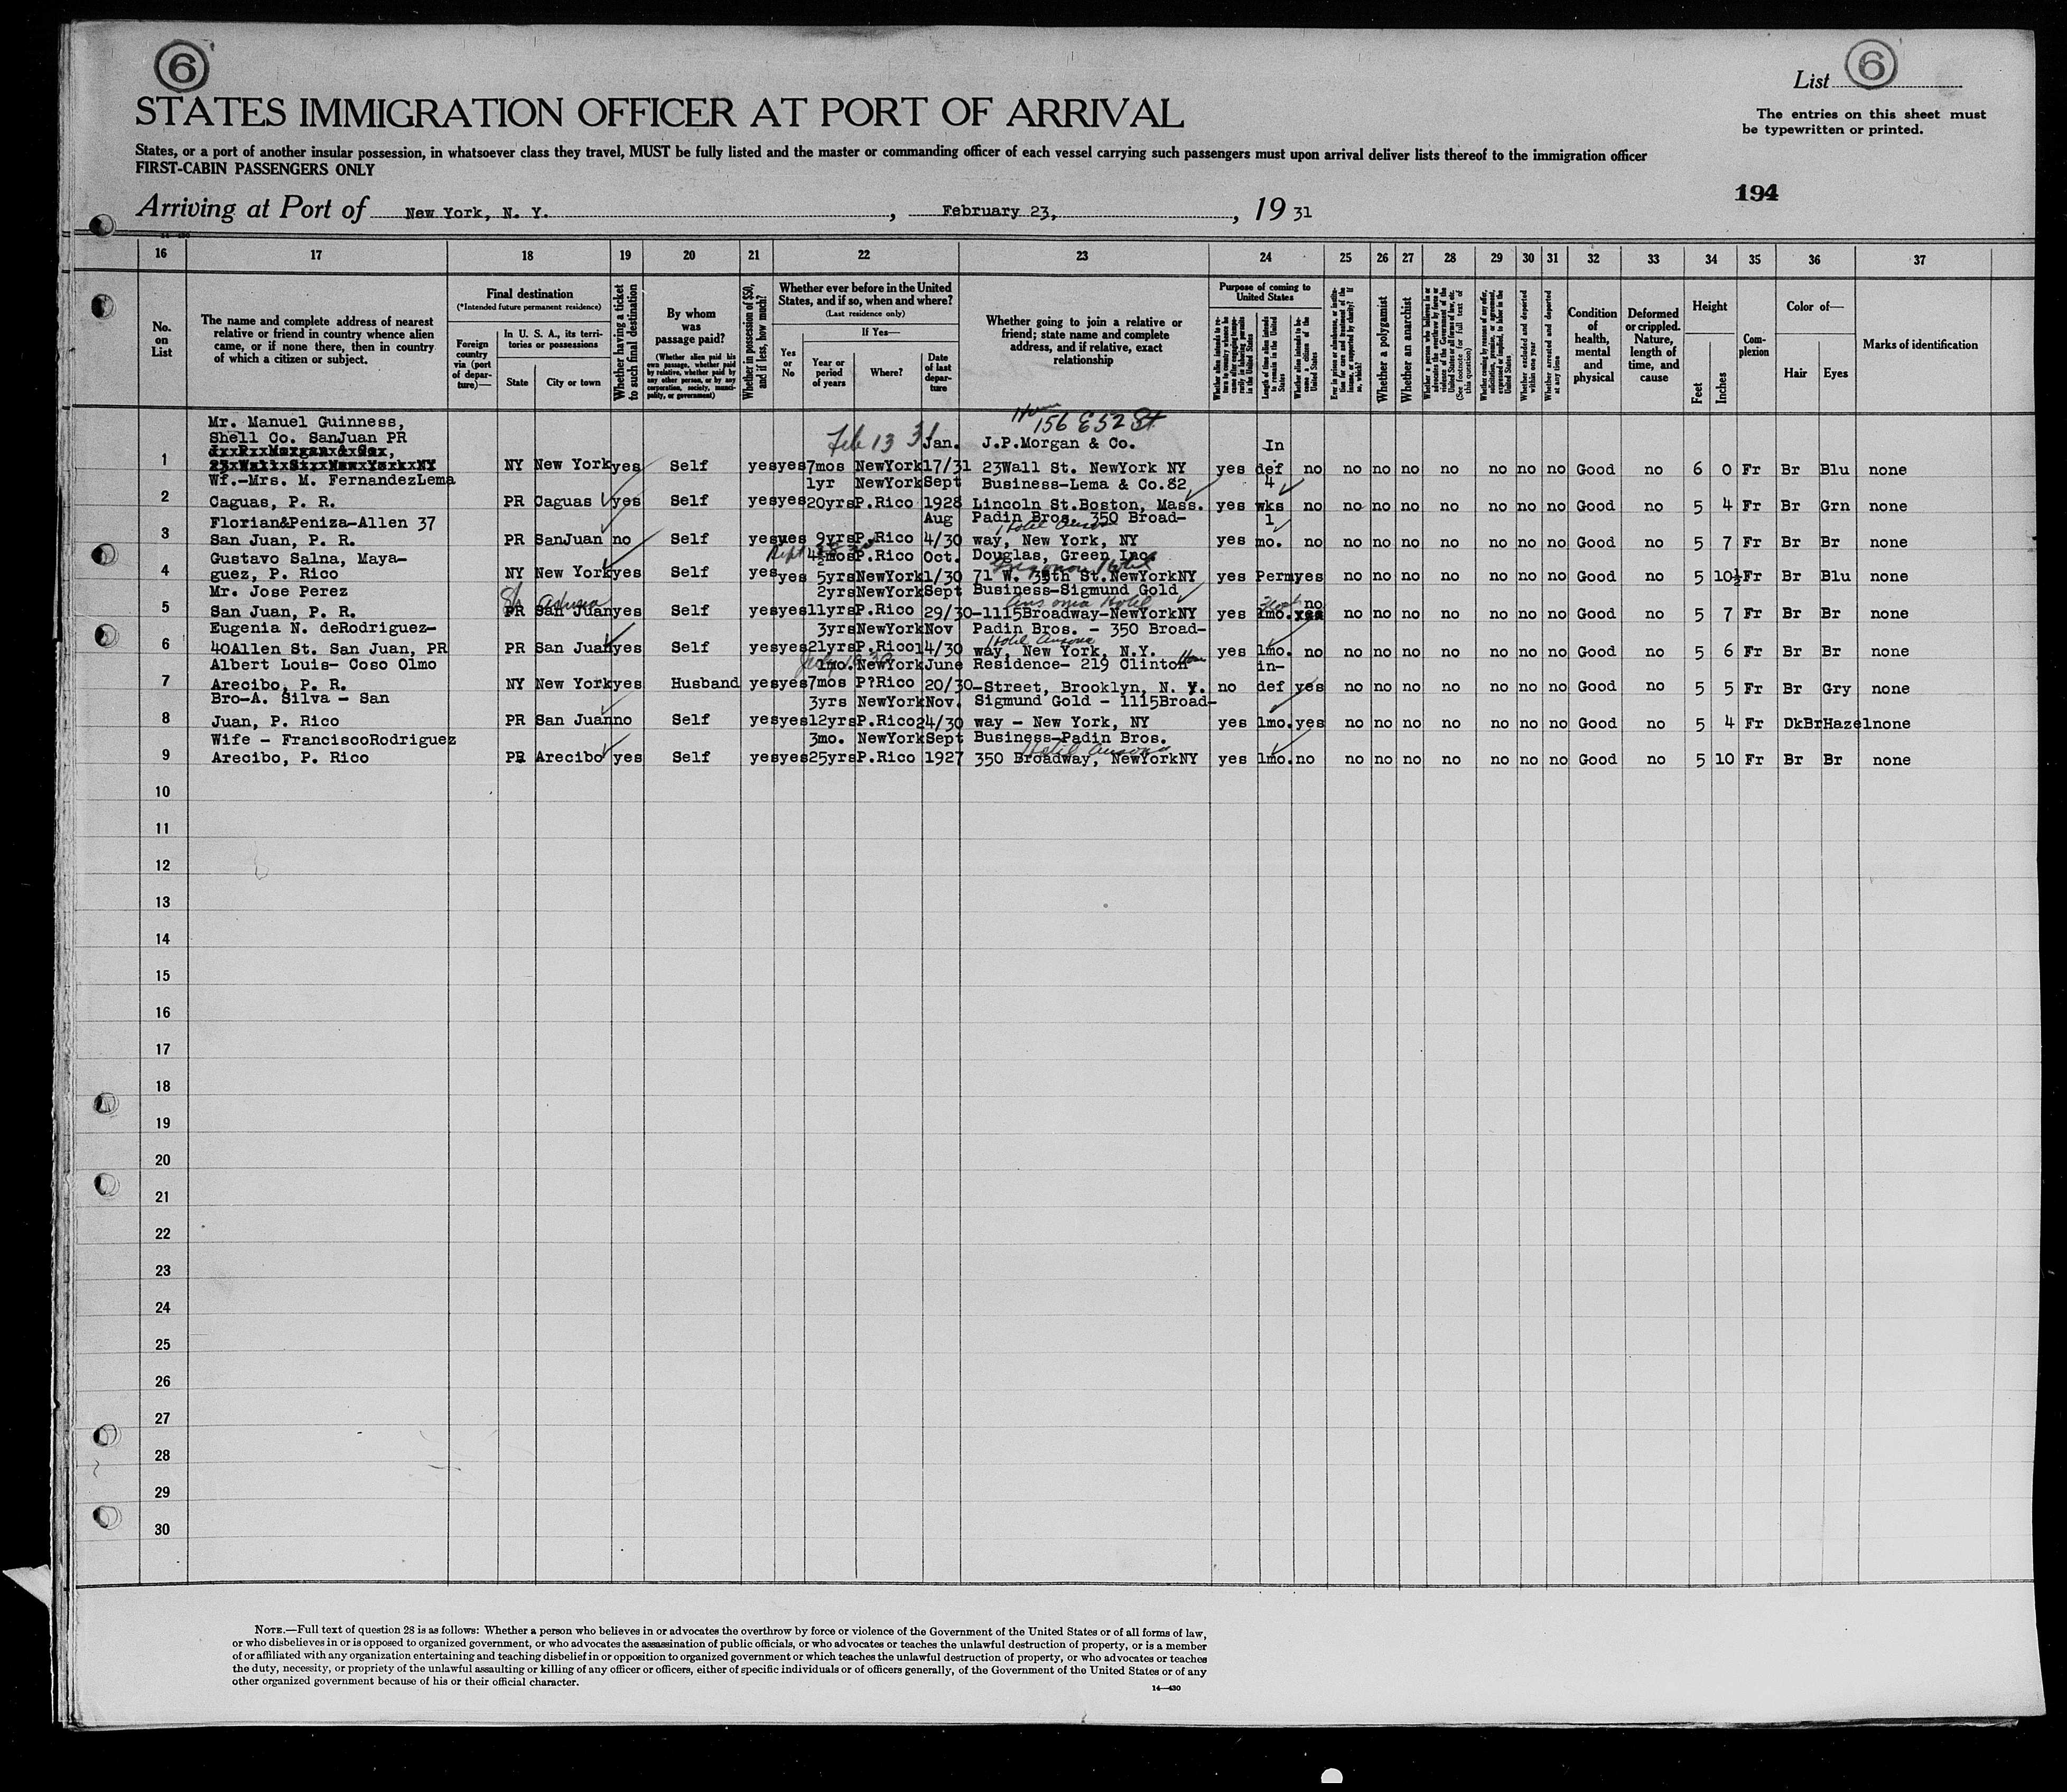 6
List 6
STATES IMMIGRATION OFFICER AT PORT OF ARRIVAL
The entries on this sheet must
be typewritten or printed.
States, or a port of another insular possession, in whatsoever class they travel, MUST be fully listed and the master or commanding officer of each vessel carrying such passengers must upon arrival deliver lists thereof to the immigration officer
FIRST-CABIN PASSENGERS ONLY
194
Arriving at Port of New York, N. Y. , February 23, , 19 31
16 17 18 19 20 21 22 23 24 25 26 27 28 29 30 31 32 33 34 35 36 37
No. on List
The name and complete address of nearest
relative or friend in country whence alien
came, or if none there, then in country
of which a citizen or subject.
Final destination
(*Intended future permanent residence)
Foreign country via (port of departure)—
In U. S. A., its territories or possessions
State City or town
Whether having a ticket to such final destination
By whom was passage paid?
(Whether alien paid his own passage, whether paid by relative, whether paid by any other person, or by any corporation, society, municipality, or government)
Whether in possession of $50, and if less, how much?
Whether ever before in the United
States, and if so, when and where?
(Last residence only)
Yes or No
If Yes—
Year or period of years
Where?
Date of last departure
Whether going to join a relative or
friend; state name and complete
address, and if relative, exact
relationship
Purpose of coming to United States
Length of time alien intends to remain in the United States
Whether alien intends to become a citizen of the United States
Whether a polygamist
Whether an anarchist
Whether excluded and deported within one year
Whether arrested and deported at any time
Condition of health, mental and physical
Deformed or crippled. Nature, length of time, and cause
Height
Feet Inches
Complexion
Color of—
Hair Eyes
Marks of identification
156 E 52 St
Mr. Manuel Guinness,
Shell Co. SanJuan PR Feb 13 31 Jan. J.P.Morgan & Co. In
1 NY New York yes Self yes yes 7mos NewYork 17/31 23Wall St. NewYork NY yes def no no no no no no no no Good no 6 0 Fr Br Blu none
Wf.-Mrs. M. FernandezLema 1yr NewYork Sept Business-Lema & Co.82 4
2 Caguas, P. R. PR Caguas yes Self yes yes 20yrs P.Rico 1928 Lincoln St.Boston, Mass. yes wks no no no no no no no no Good no 5 4 Fr Br Grn none
Florian&Peniza-Allen 37 Aug Padin Bros. 350 Broad- 1
3 San Juan, P. R. PR SanJuan no Self yes yes 9yrs P.Rico 4/30 way, New York, NY yes mo. no no no no no no no no Good no 5 7 Fr Br Br none
Gustavo Salna, Maya- 4½mos P.Rico Oct. Douglas, Green Inc.
4 guez, P. Rico NY New York yes Self yes yes 5yrs NewYork 1/30 71 W. 35th St.NewYorkNY yes Perm yes no no no no no no no Good no 5 10½ Fr Br Blu none
Mr. Jose Perez 2yrs NewYork Sept Business-Sigmund Gold
Ansonia Hotel no
5 San Juan, P. R. PR San Juan yes Self yes yes 11yrs P.Rico 29/30 -1115Broadway-NewYorkNY yes 1mo. yes no no no no no no no Good no 5 7 Fr Br Br none
Eugenia N. deRodriguez- 3yrs NewYork Nov Padin Bros. - 350 Broad-
6 40Allen St. San Juan, PR PR San Juan yes Self yes yes 21yrs P.Rico 14/30 way, New York, N.Y. yes 1mo. no no no no no no no no Good no 5 6 Fr Br Br none
Albert Louis- Coso Olmo 1mo. NewYork June Residence- 219 Clinton in-
7 Arecibo, P. R. NY New York yes Husband yes yes 7mos P?Rico 20/30 -Street, Brooklyn, N. Y. no def yes no no no no no no no Good no 5 5 Fr Br Gry none
Bro-A. Silva - San 3yrs NewYork Nov. Sigmund Gold - 1115Broad-
8 Juan, P. Rico PR San Juan no Self yes yes 12yrs P.Rico 24/30 way - New York, NY yes 1mo. yes no no no no no no no Good no 5 4 Fr DkBr Hazel none
Wife - FranciscoRodriguez 3mo. NewYork Sept Business-Padin Bros.
9 Arecibo, P. Rico PR Arecibo yes Self yes yes 25yrs P.Rico 1927 350 Broadway, NewYorkNY yes 1mo. no no no no no no no no Good no 5 10 Fr Br Br none
10
11
12
13
14
15
16
17
18
19
20
21
22
23
24
25
26
27
28
29
30
NOTE.—Full text of question 28 is as follows: Whether a person who believes in or advocates the overthrow by force or violence of the Government of the United States or of all forms of law,
or who disbelieves in or is opposed to organized government, or who advocates the assassination of public officials, or who advocates or teaches the unlawful destruction of property, or is a member
of or affiliated with any organization entertaining and teaching disbelief in or opposition to organized government or which teaches the unlawful destruction of property, or who advocates or teaches
the duty, necessity, or propriety of the unlawful assaulting or killing of any officer or officers, either of specific individuals or of officers generally, of the Government of the United States or of any
other organized government because of his or their official character.
14—430